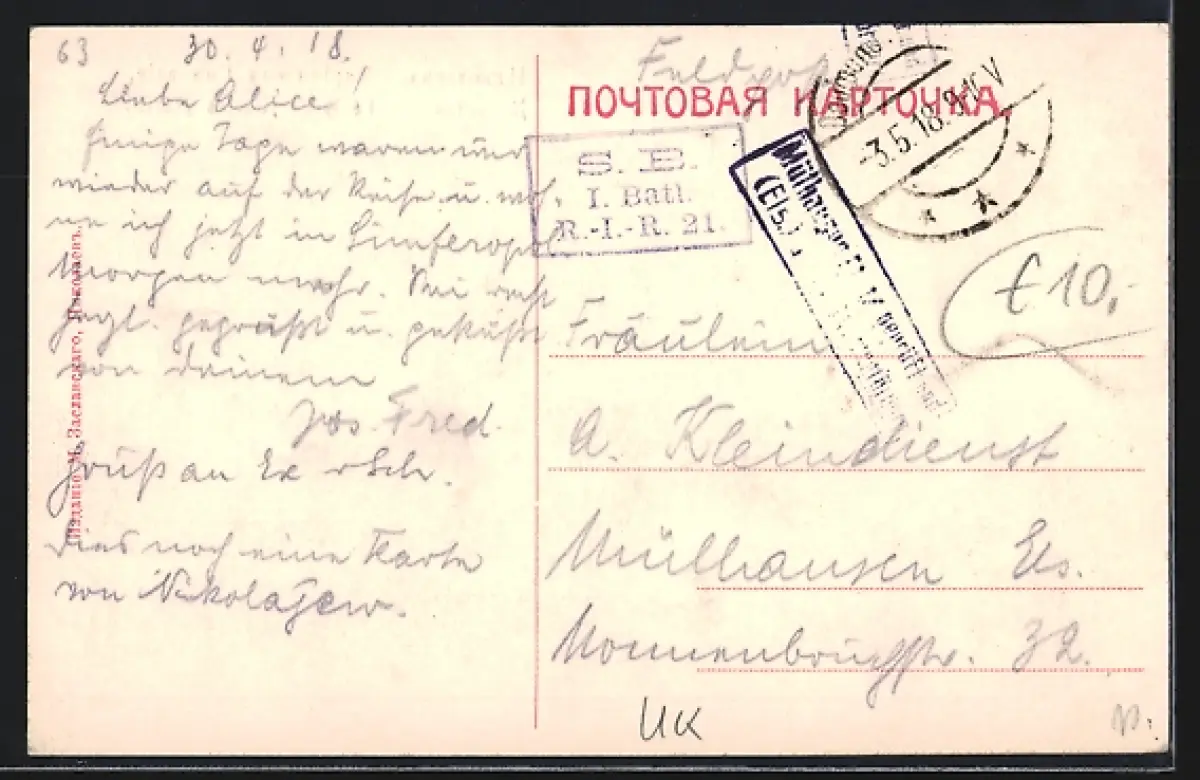 63 30. 4. 18.
Liebe Alice!
Einige Tage waren wir
wieder auf der Reise u. woh-
ne ich jetzt in Simferopol
Morgen mehr. Sei recht
herzl. gegrüßt u. geküßt
von deinem
Fred.
Gruß an
Dies noch eine Karte
von Nikolajew.
Изданіе М. Заславскаго, Николаевъ.
Feldpost
ПОЧТОВАЯ КАРТОЧКА.
-3.5.18.
S. B.
I. Batl.
R.-I.-R. 21.
Mülhausen
(Els.)
€10,-
Fräulein
A. Kleindienst
Mülhausen Els.
32.
UK